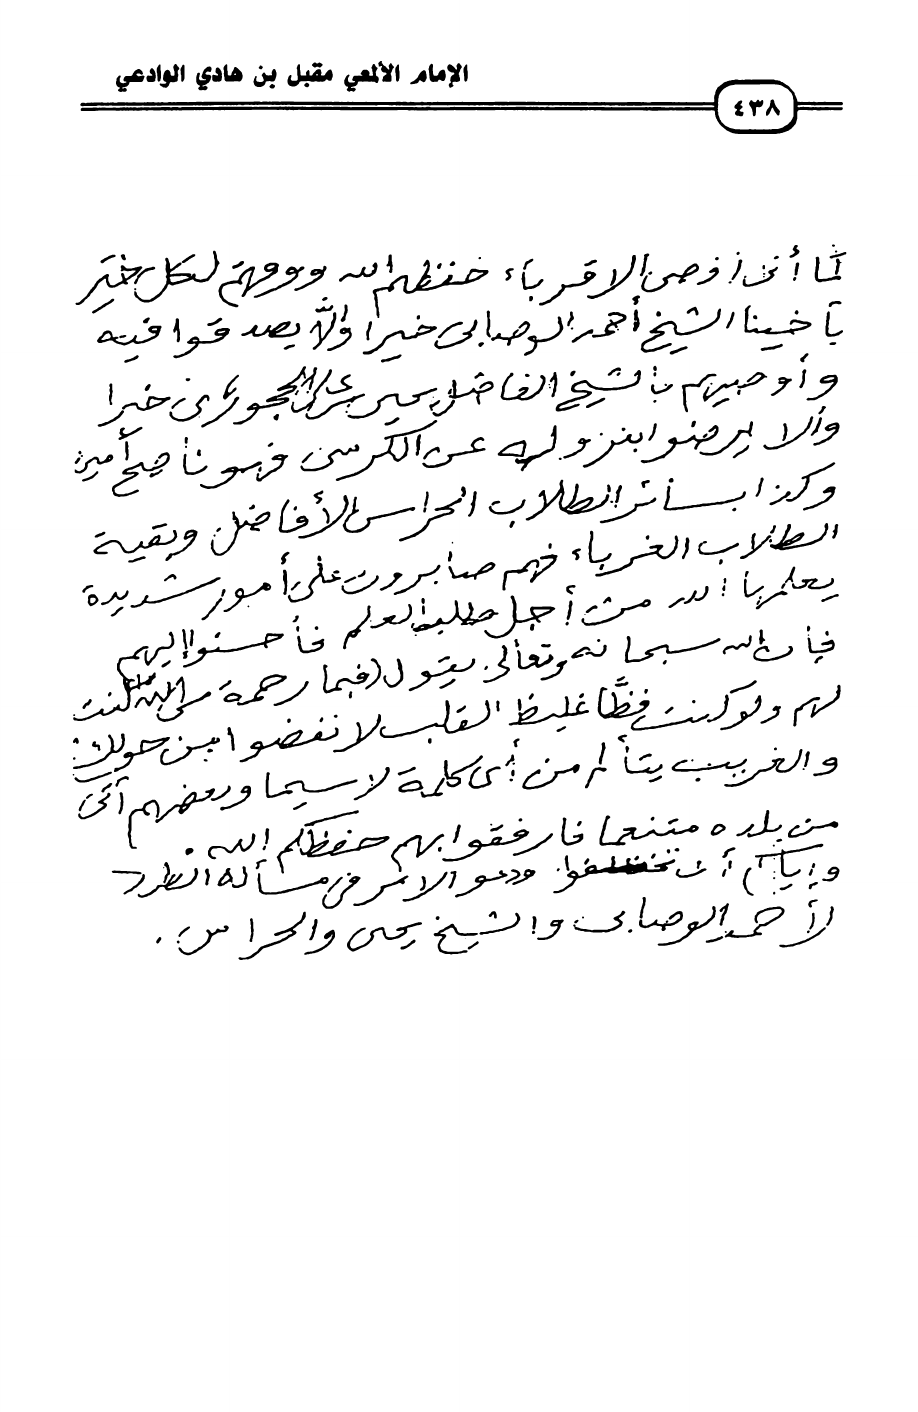 الإمام الألمعي مقبل بن هادي الوادعي
٤٣٨
كما أنني أوصي الاقرباء حفظهم الله ووفقهم لكل خير
بأخينا الشيخ أحمد الوصابي خيرا وألَّا يصدقوا فيه
وأوصيهم بالشيخ الفاضل يحيى بن علي الحجوري خيرا
وألا يرضوا بنزوله عن الكرسي فهو ناصح أمين
وكذا بسائر الطلاب الحراس الأفاضل وبقية
الطلاب الغرباء فهم صابرون على أمور شديدة
يعلمها الله من أجل طلب العلم فأحسنوا إليهم
فإن الله سبحانه وتعالى يقول (فبما رحمة من الله لنت
لهم ولو كنت فظًّا غليظ القلب لانفضوا من حولك)
والغريب يتألم من أي كلمة لاسيما وبعضهم أتى
من بلده متنعما فارفقوا بهم حفظكم الله .
وإياكم أن تختلفوا ودعو الامر في مسألة الطرد
لأحمد الوصابي والشيخ يحيى والحراس .